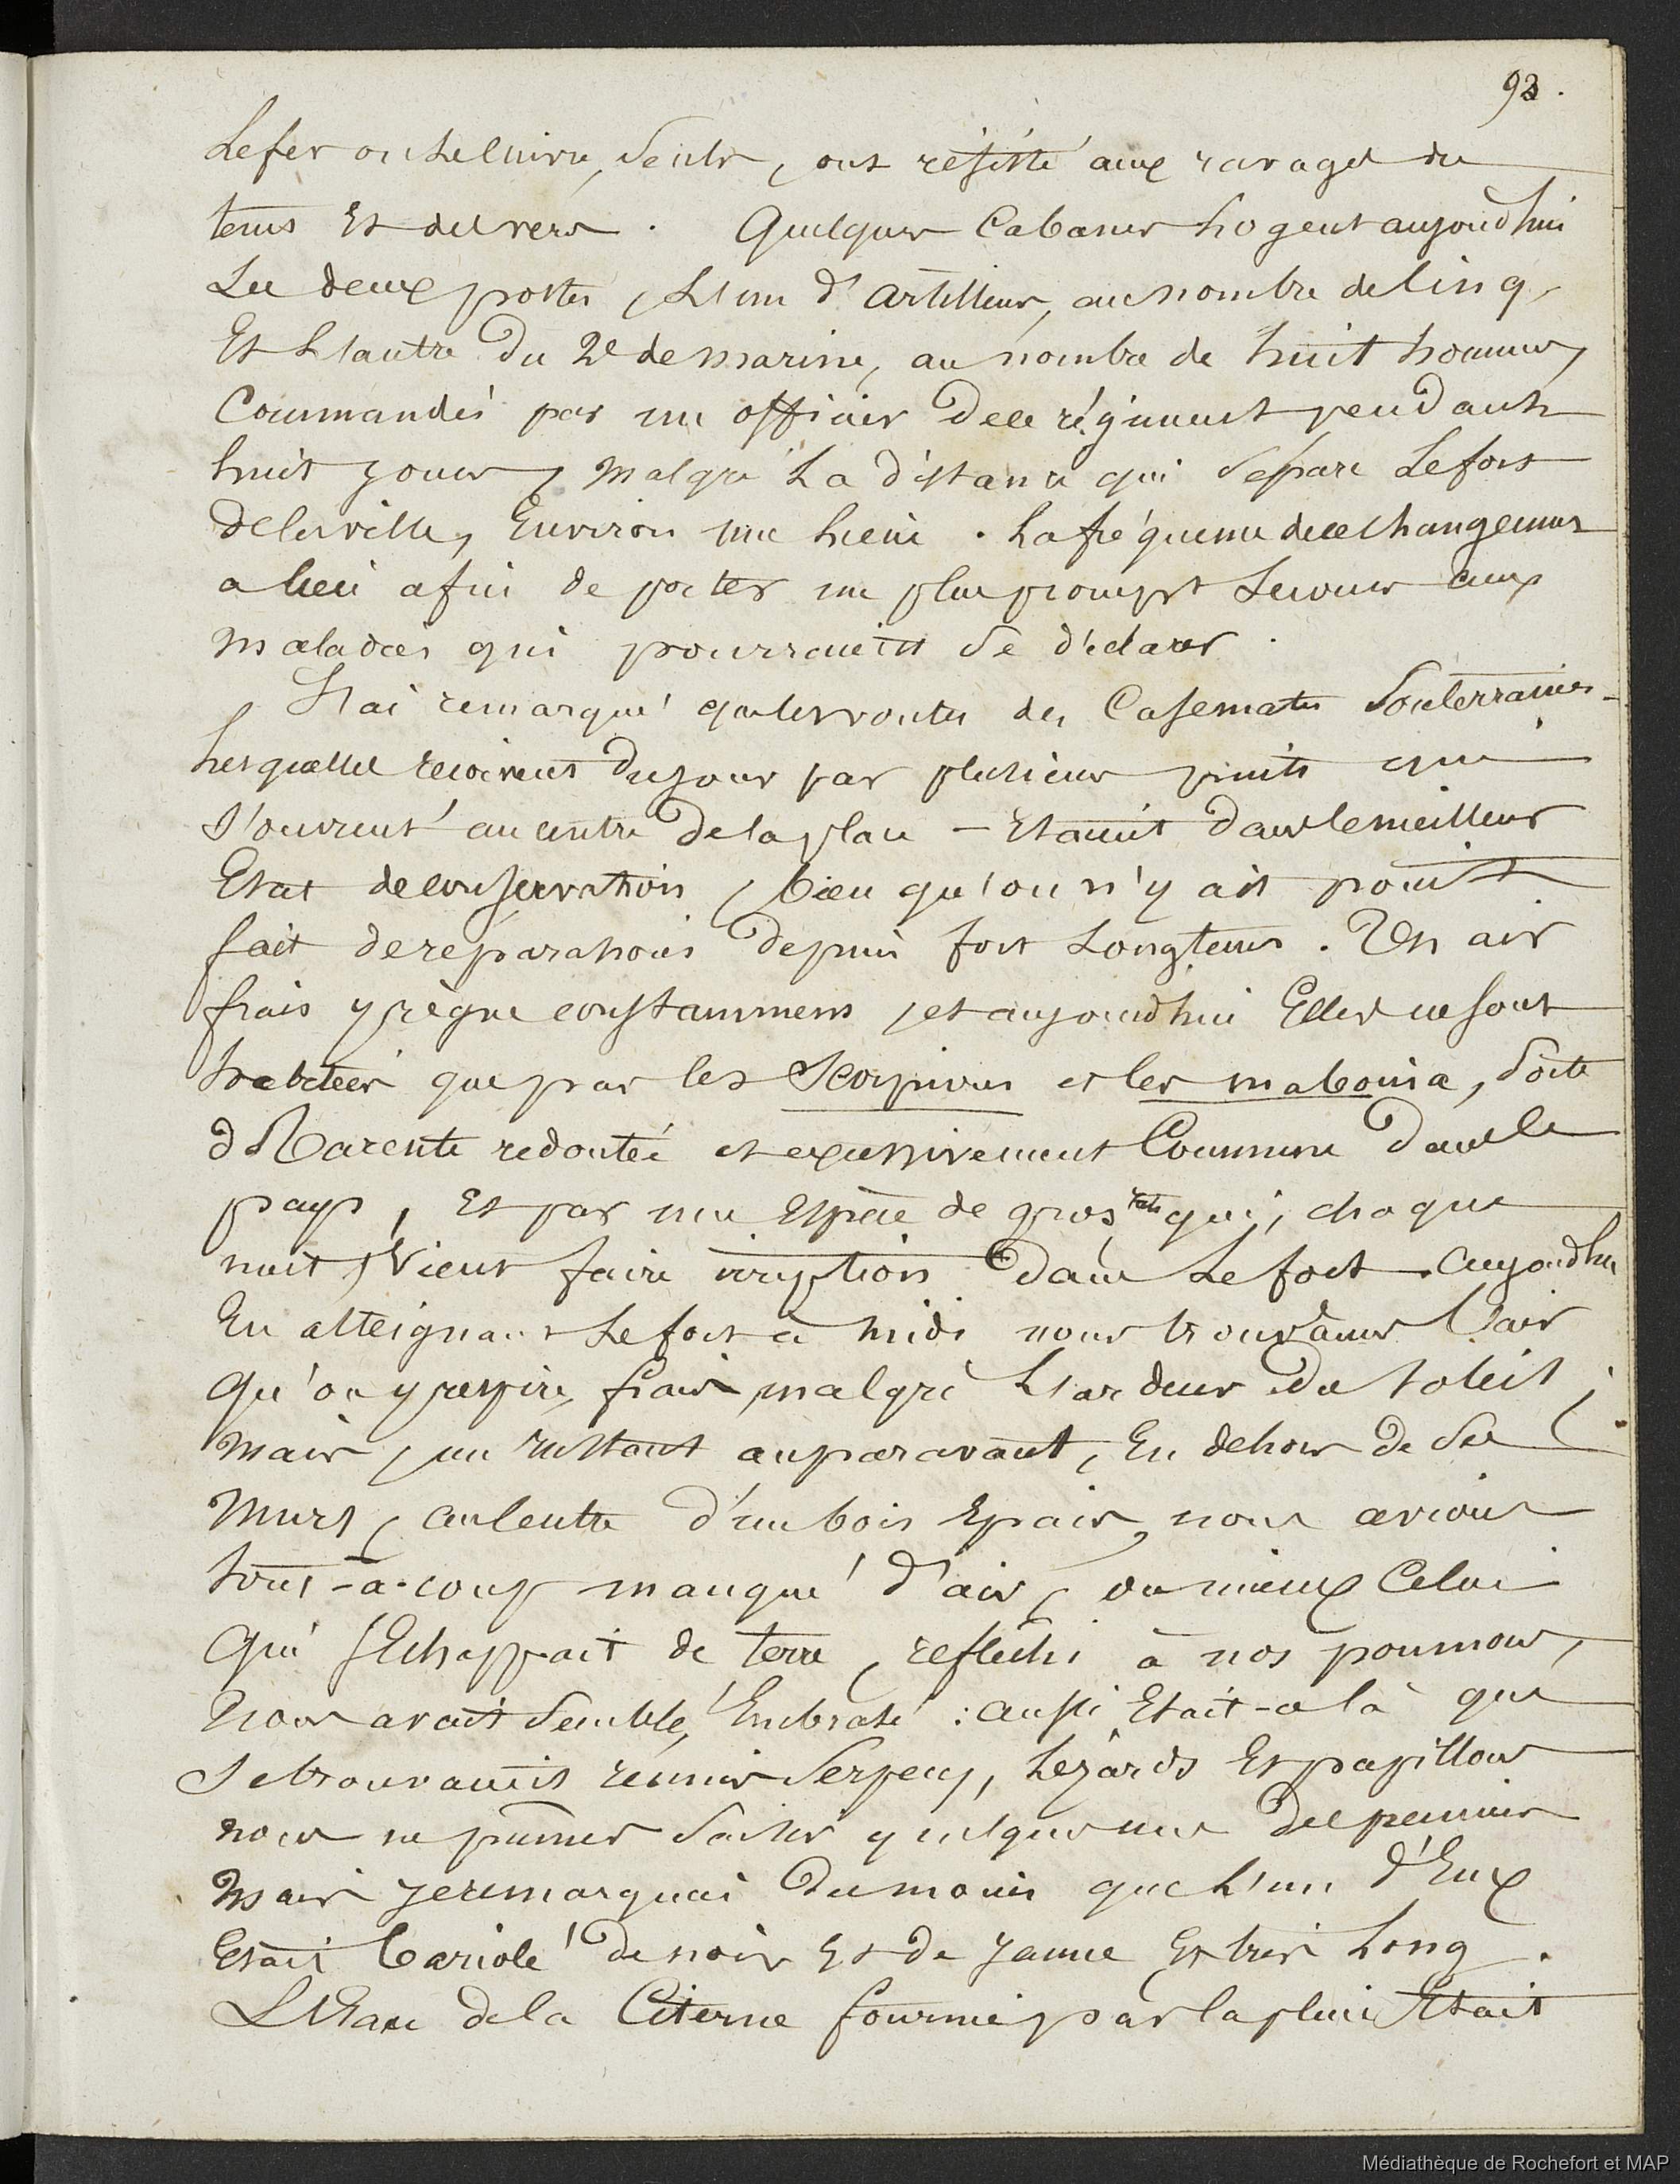 93.
Le fer ou le cuivre, seuls, ont résisté aux ravages du
tems Et des vers. Quelques Cabanes Logent aujourd'hui
Les deux postes, L'un d'artilleurs, au nombre de Cinq,
Et L'autre du 2e de marine, au nombre de huit hommes,
Commandés par un officier de ce régiment pendant
huit jours, malgré La distance qui sépare Le fort
de la ville, Environ une lieue. La fréquence de ce changement
a lieu afin de porter un plus prompt Secours aux
maladies qui pourraient se déclarer.
J'ai remarqué que les voutes des Casemates Souterraines -
Lesquelles reçoivent du jour par plusieurs puits qui
s'ouvrent au centre de la place - Etaient dans le meilleur
Etat de conservation, bien qu'on n'y ait point
fait de réparations depuis fort Longtems. Un air
frais y règne constamment, et aujourd'hui Elles ne sont
habitées que par les Scorpions et les mabouia, sorte
de Tarente redoutée et excessivement Commune dans le
pays, Et par une Espèce de gros rats qui, chaque
nuit, Vient faire irruption dans Le fort. Aujourd'hui
En atteignant Le fort à midi nous trouvâmes l'air
qu'on y respire, frais, malgré L'ardeur du soleil;
mais, un instant auparavant, En dehors de ses
murs, au centre d'un bois Epais, nous avions
tout-à-coup manqué d'air, ou mieux Celui
qui s'Echappait de terre, refléchi à nos poumons,
nous avait semblé Embrasé: aussi Etait-ce là que
se trouvaient réunis Serpens, Lézards Et papillons
nous ne pumes saisir quelques uns des premiers
mais je remarquai du moins que L'un d'Eux
Etait bariolé de noir Et de jaune Et très Long.
L'Eau de la Citerne fournie par la pluie Etait
Médiathèque de Rochefort et MAP